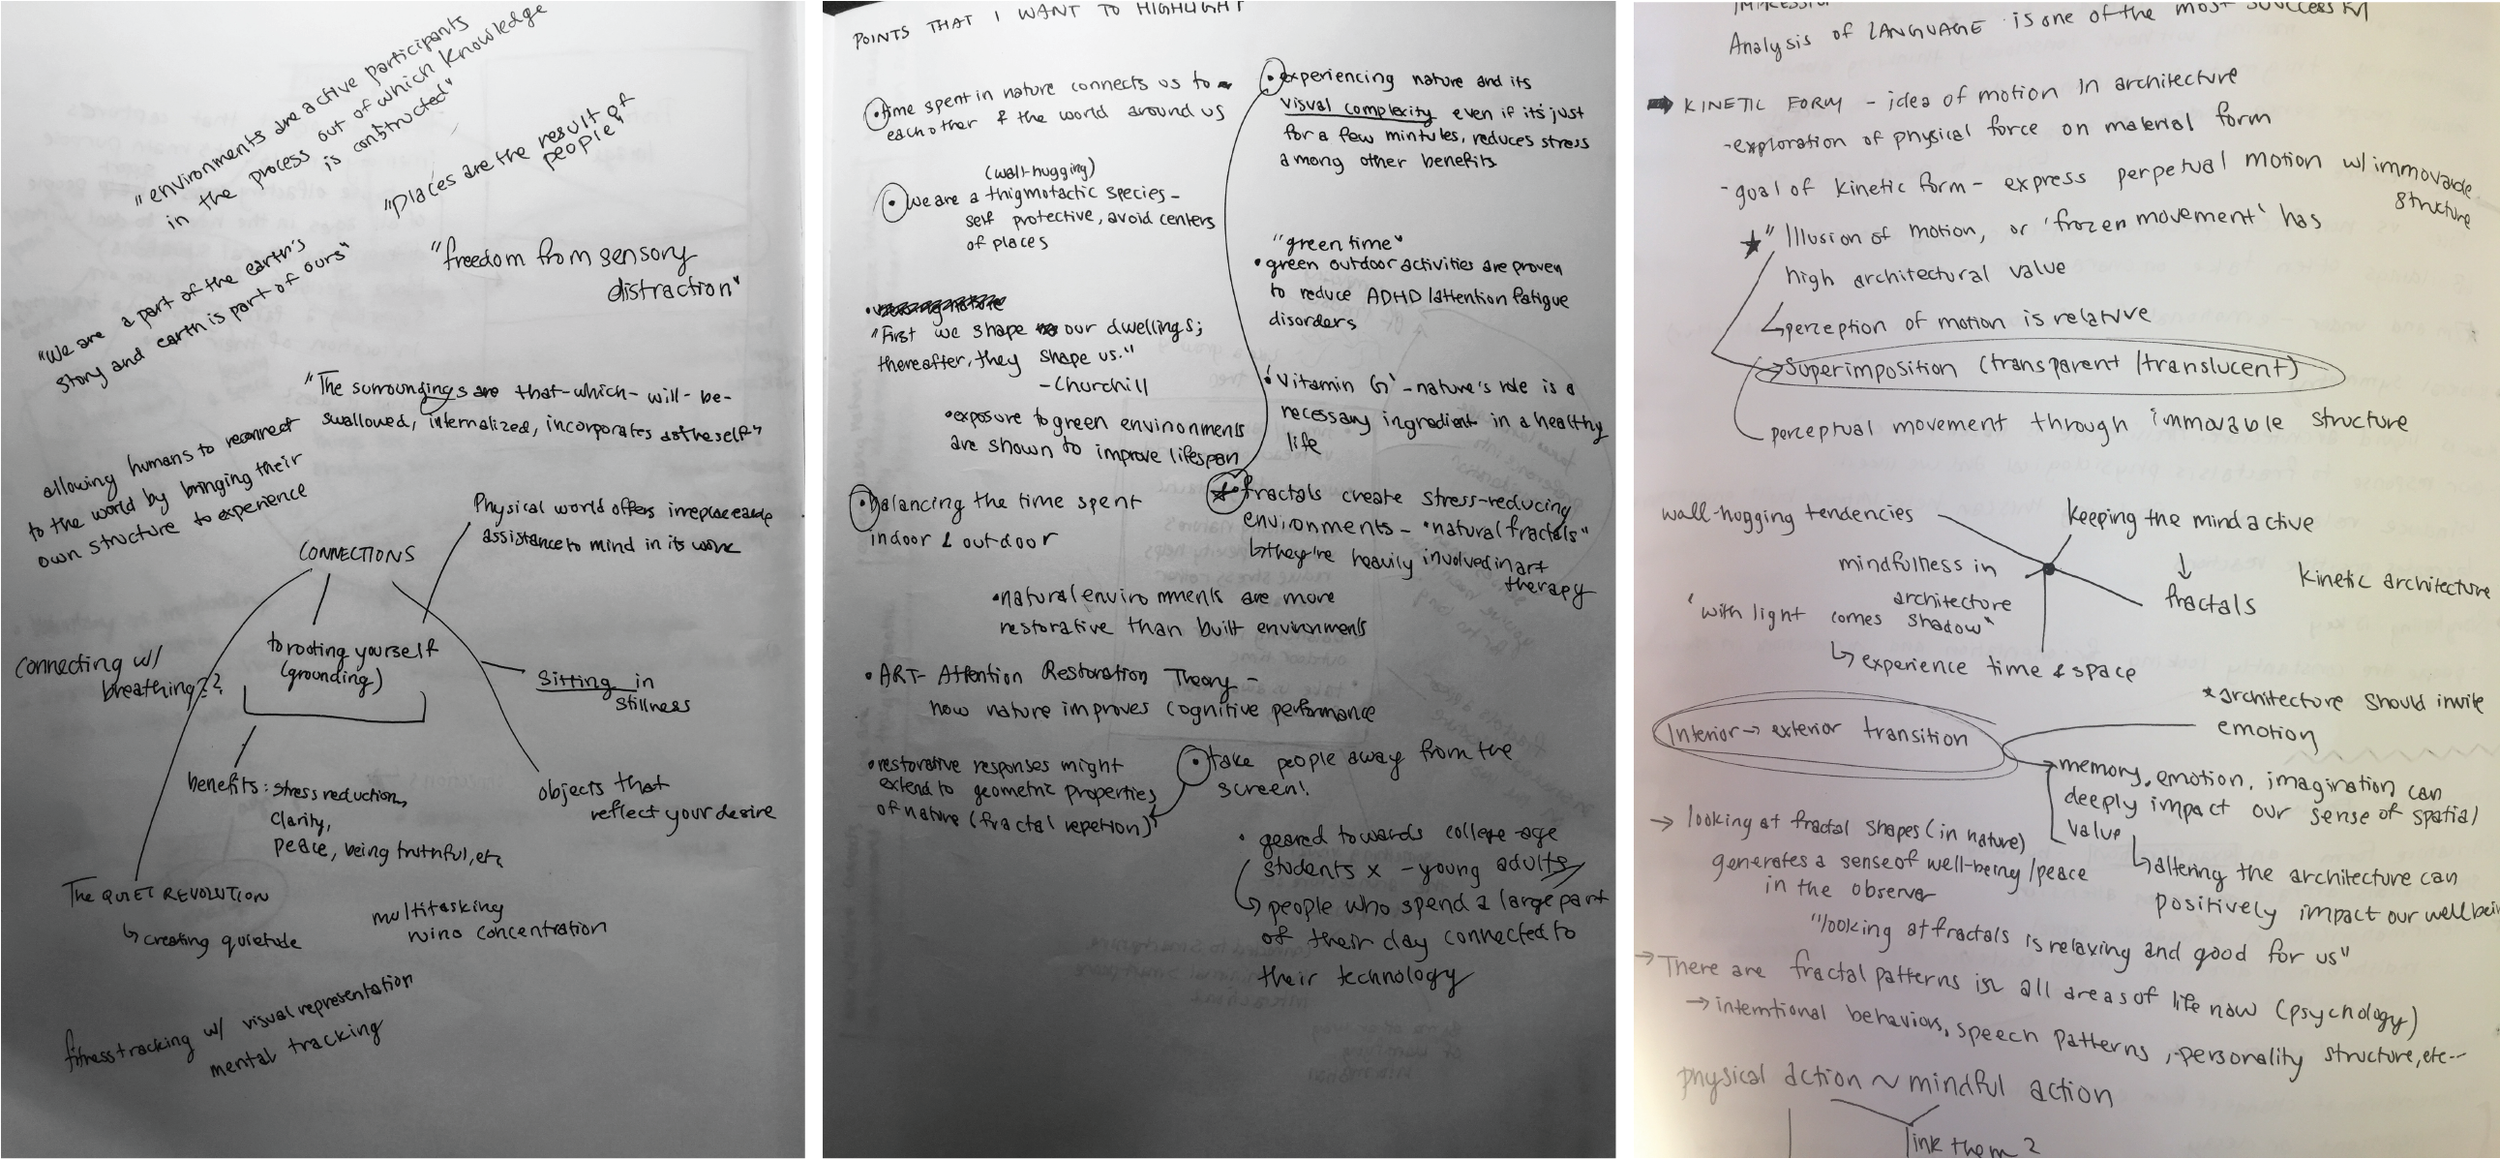 "environments are active participants
in the process out of which knowledge
is constructed"
"places are the result of
people"
"We are a part of the earth's
story and earth is part of ours"
"freedom from sensory
distraction"
"The surroundings are that-which-will-be-
swallowed, internalized, incorporates as the self"
allowing humans to reconnect
to the world by bringing their
own structure to experience
Physical world offers irreplaceable
assistance to mind in its work
CONNECTIONS
to rooting yourself
(grounding)
connecting w/
breathing??
Sitting in
stillness
benefits: stress reduction,
clarity,
peace, being truthful, etc
objects that
reflect your desire
The QUIET REVOLUTION
↳ creating quietude
multitasking
concentration
fitness tracking w/ visual representation
mental tracking
POINTS THAT I WANT TO HIGHLIGHT
• time spent in nature connects us to
each other & the world around us
(wall-hugging)
• we are a thigmotactic species -
self protective, avoid centers
of places
"First we shape our dwellings;
thereafter, they shape us."
- Churchill
• exposure to green environments
are shown to improve lifespan
• balancing the time spent
indoor & outdoor
• experiencing nature and its
visual complexity even if it's just
for a few mintules, reduces stress
among other benefits
"green time"
• green outdoor activities are proven
to reduce ADHD/attention fatigue
disorders
• 'Vitamin G' - nature's role is a
necessary ingredient in a healthy
life
fractals create stress-reducing
environments - "natural fractals"
↳ they're heavily involved in art
therapy
• natural enviromments are more
restorative than built environments
• ART- Attention Restoration Theory -
how nature improves cognitive performance
• restorative responses might
extend to geometric properties
of nature (fractal repetion)
• take people away from the
screen!
• geared towards college-age
students x - young adults
people who spend a large part
of their day connected to
their technology
Analysis of LANGUAGE is one of the most successful
➡ KINETIC FORM - idea of motion in architecture
- exploration of physical force on material form
- goal of kinetic form - express perpetual motion w/ immovable
structure
★ "Illusion of motion, or 'frozen movement' has
high architectural value
↳ perception of motion is relative
→ Superimposition (transparent/translucent)
perceptual movement through immovable structure
wall-hugging tendencies
keeping the mind active
mindfulness in
architecture
↓
fractals
kinetic architecture
"with light comes shadow"
↳ experience time & space
Interior → exterior transition
* architecture should invite
emotion
memory, emotion, imagination can
deeply impact our sense of spatial
value
↳ altering the architecture can
positively impact our wellbein
→ looking at fractal shapes (in nature)
generates a sense of well-being/peace
in the observer
"looking at fractals is relaxing and good for us"
→ There are fractal patterns in all areas of life now (psychology)
→ intemtional behaviors, speech patterns, personality structure, etc--
physical action ~ mindful action
link them?